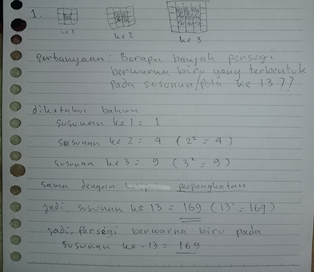 1.
ke 1 ke 2 ke 3
Pertanyaan: Berapa banyak persegi
berwarna biru yang terbentuk
pada susunan/pola ke 13??
diketahui bahwa
susunan ke 1 = 1
susunan ke 2 = 4 (2² = 4)
susunan ke 3 = 9 (3² = 9)
sama dengan perpangkatan
jadi, susunan ke 13 = 169 (13² = 169)
jadi, Persegi berwarna biru pada
susunan ke-13 = 169